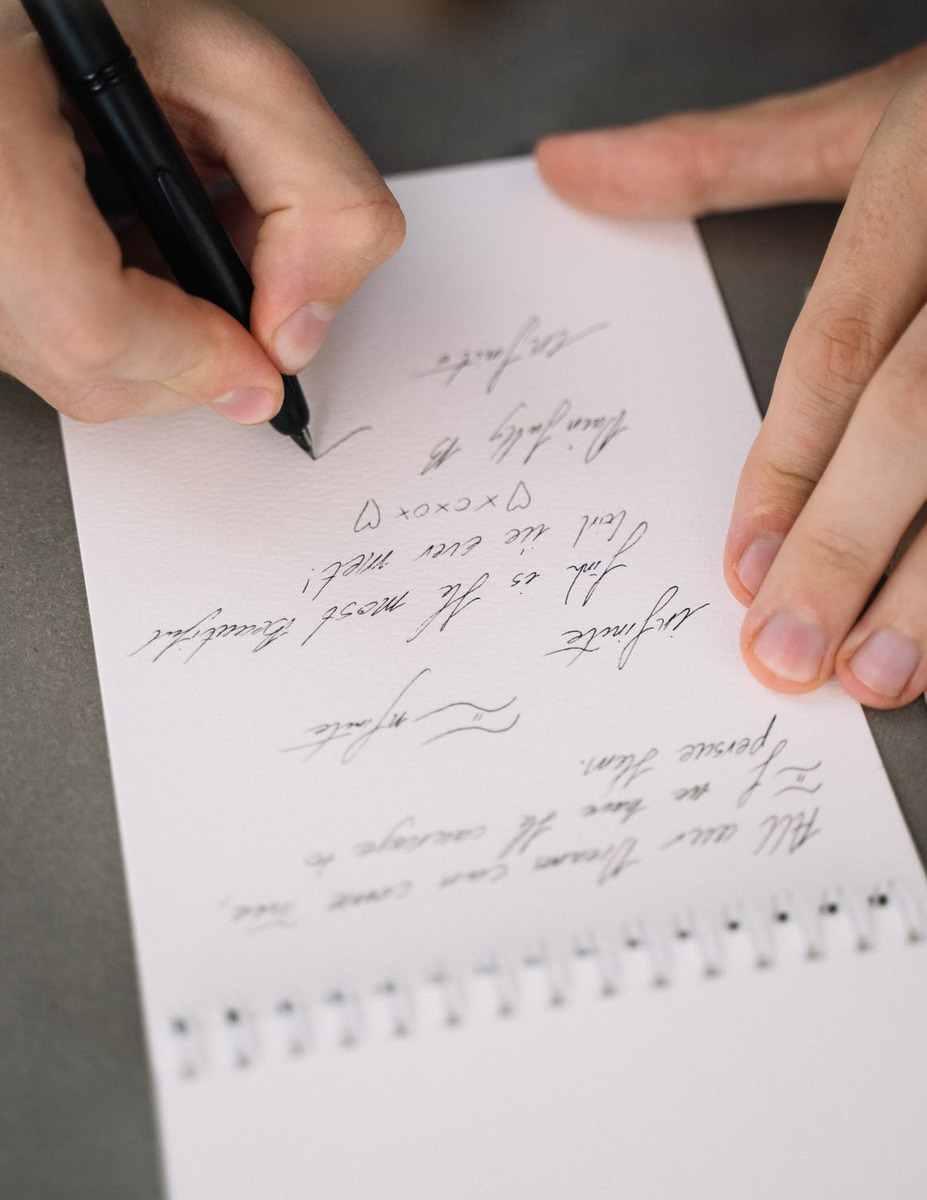 All our Dream can come True,
If we have the courage to
persue them.
Infinite
infinite
is the most Beautiful
ever met!
♡xoxox♡
Painfully B
infinite